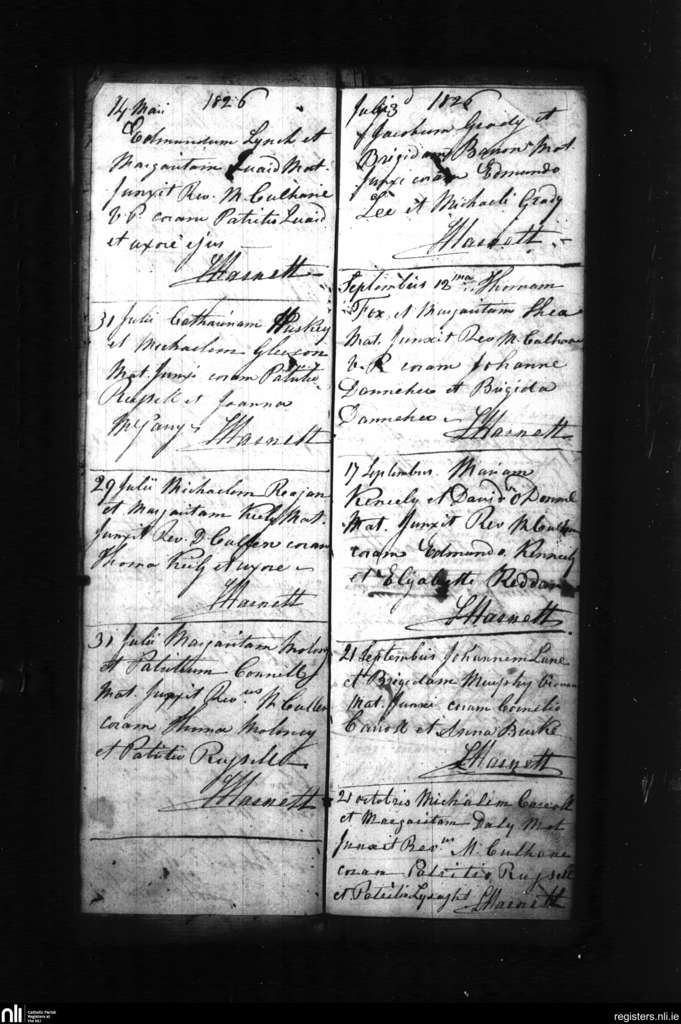 14 Maii 1826
Edmundum Lynch et
Margaritam Quaid Mat.
Junxit Rev. M. Culhane
V. P. coram Patritio Quaid
et uxore ejus
Harnett
31 Julii Catharinam Huskey
et Michaelem Gleeson
Mat. Junxi coram Patritio
Russell et Joanna
Harnett
29 Julii Michaelem Reagan
et Margaritam Kiely Mat.
Junxit Rev. D. Cullen coram
Thoma Kiely et uxore
Harnett
31 Julii Margaritam Molony
et Patritium Connell
Mat. Junxit Rev.us
coram Thoma Molony
et Patritio Russell
Harnett
Julii 3d 1826
Jacobum Grady et
Brigidam Mat.
Junxi coram Edmundo
Lee et Michaeli Grady
Harnett
Septembris 12ma Thomam
Fox et Margaritam Shea
Mat. Junxit Rev M. Culhane
V. P. coram Johanne
Donneher et Brigida
Donneher
Harnett
17 Septembris Mariam
Kennely et David O Donnel
Mat. Junxit Rev M. Culhane
coram Edmundo Kennely
et Elizabetha Reddan
Harnett
21 Septembris Johannem Lane
et Brigidam Murphy
Mat. Junxi coram Cornelio
et Anna Burke
Harnett
21 octobris Michalem Carroll
et Margaritam Daly Mat
Junxit Revus M. Culhane
coram Patritio Russell
et Patritio Lysaght Harnett
nli
Catholic Parish
Registers at
the NLI
registers.nli.ie